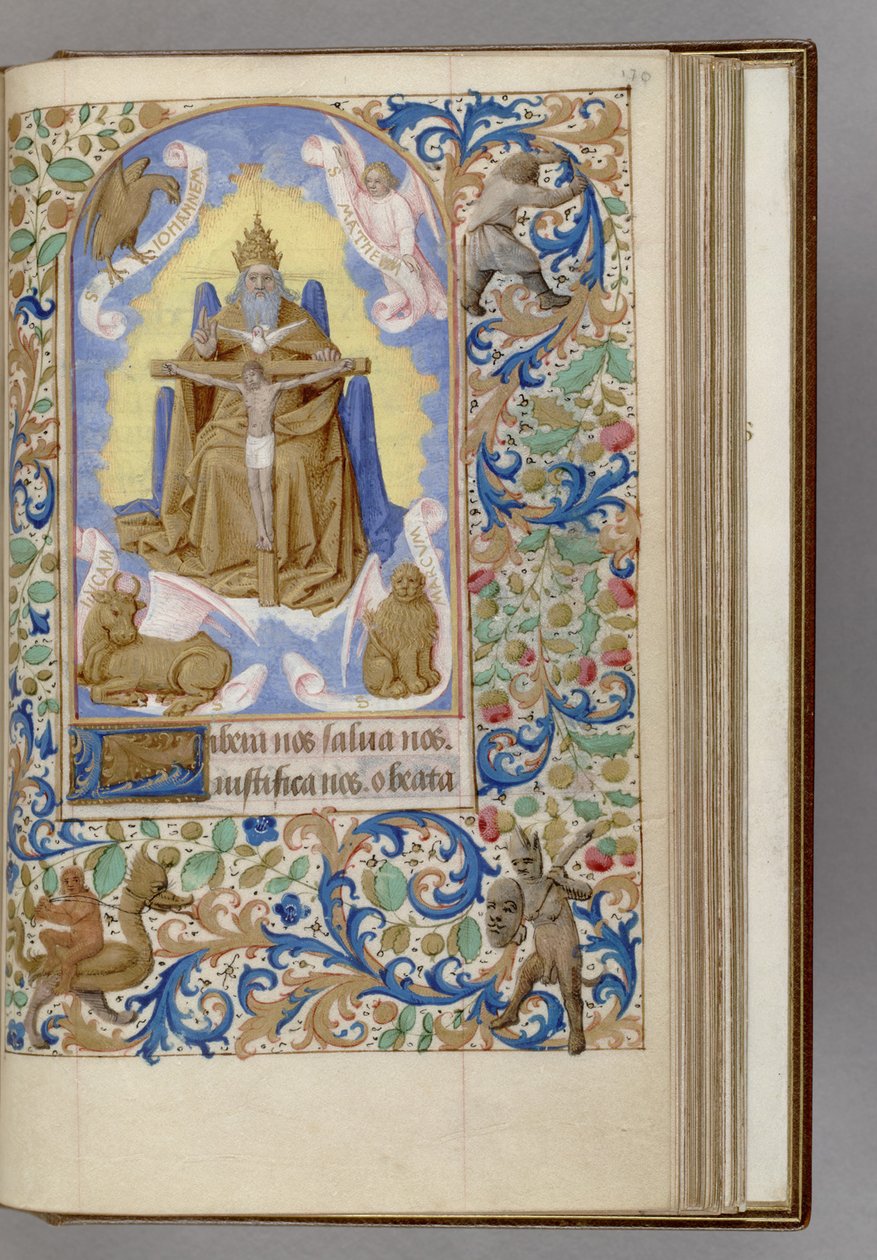 170
S IOHANNEM
S MATTHEVM
S LVCAM
S MARCVM
Libera nos salua nos.
iustifica nos. o beata